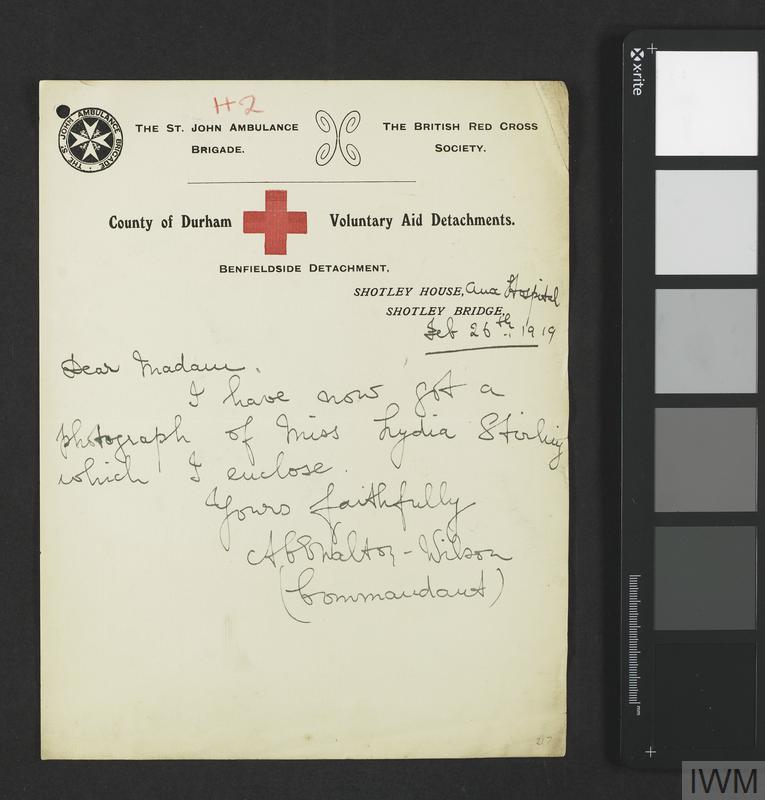 H2
THE ST. JOHN AMBULANCE BRIGADE
THE ST. JOHN AMBULANCE
BRIGADE.
THE BRITISH RED CROSS
SOCIETY.
County of Durham Voluntary Aid Detachments.
BENFIELDSIDE DETACHMENT,
SHOTLEY HOUSE, Aux Hospital
SHOTLEY BRIDGE,
Feb 26th 1919
Dear Madam.
I have now got a
photograph of Miss Lydia Stirling
which I enclose.
Yours faithfully
Walton-Wilson
(Commandant)
217
x·rite
mm
IWM